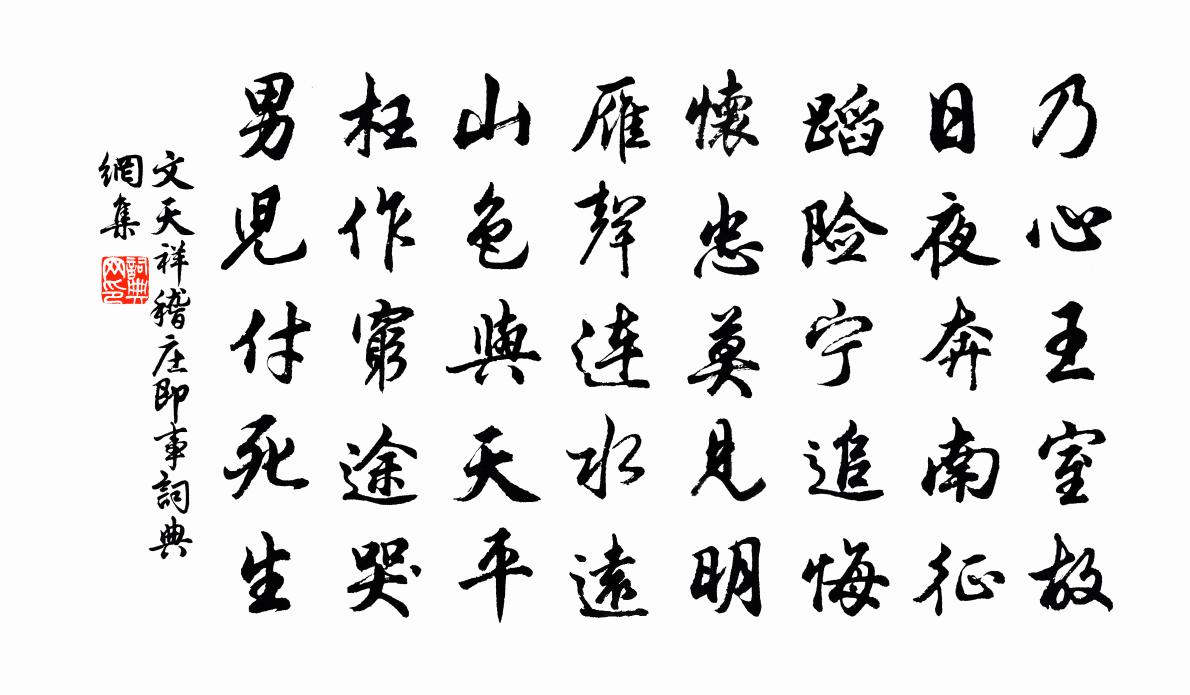 乃心王室故
日夜奔南征
蹈险宁追悔
懷忠莫見明
雁聲连水遠
山色與天平
枉作窮途哭
男兒付死生
文天祥稽庄即事詞典
網集
詞典
网印